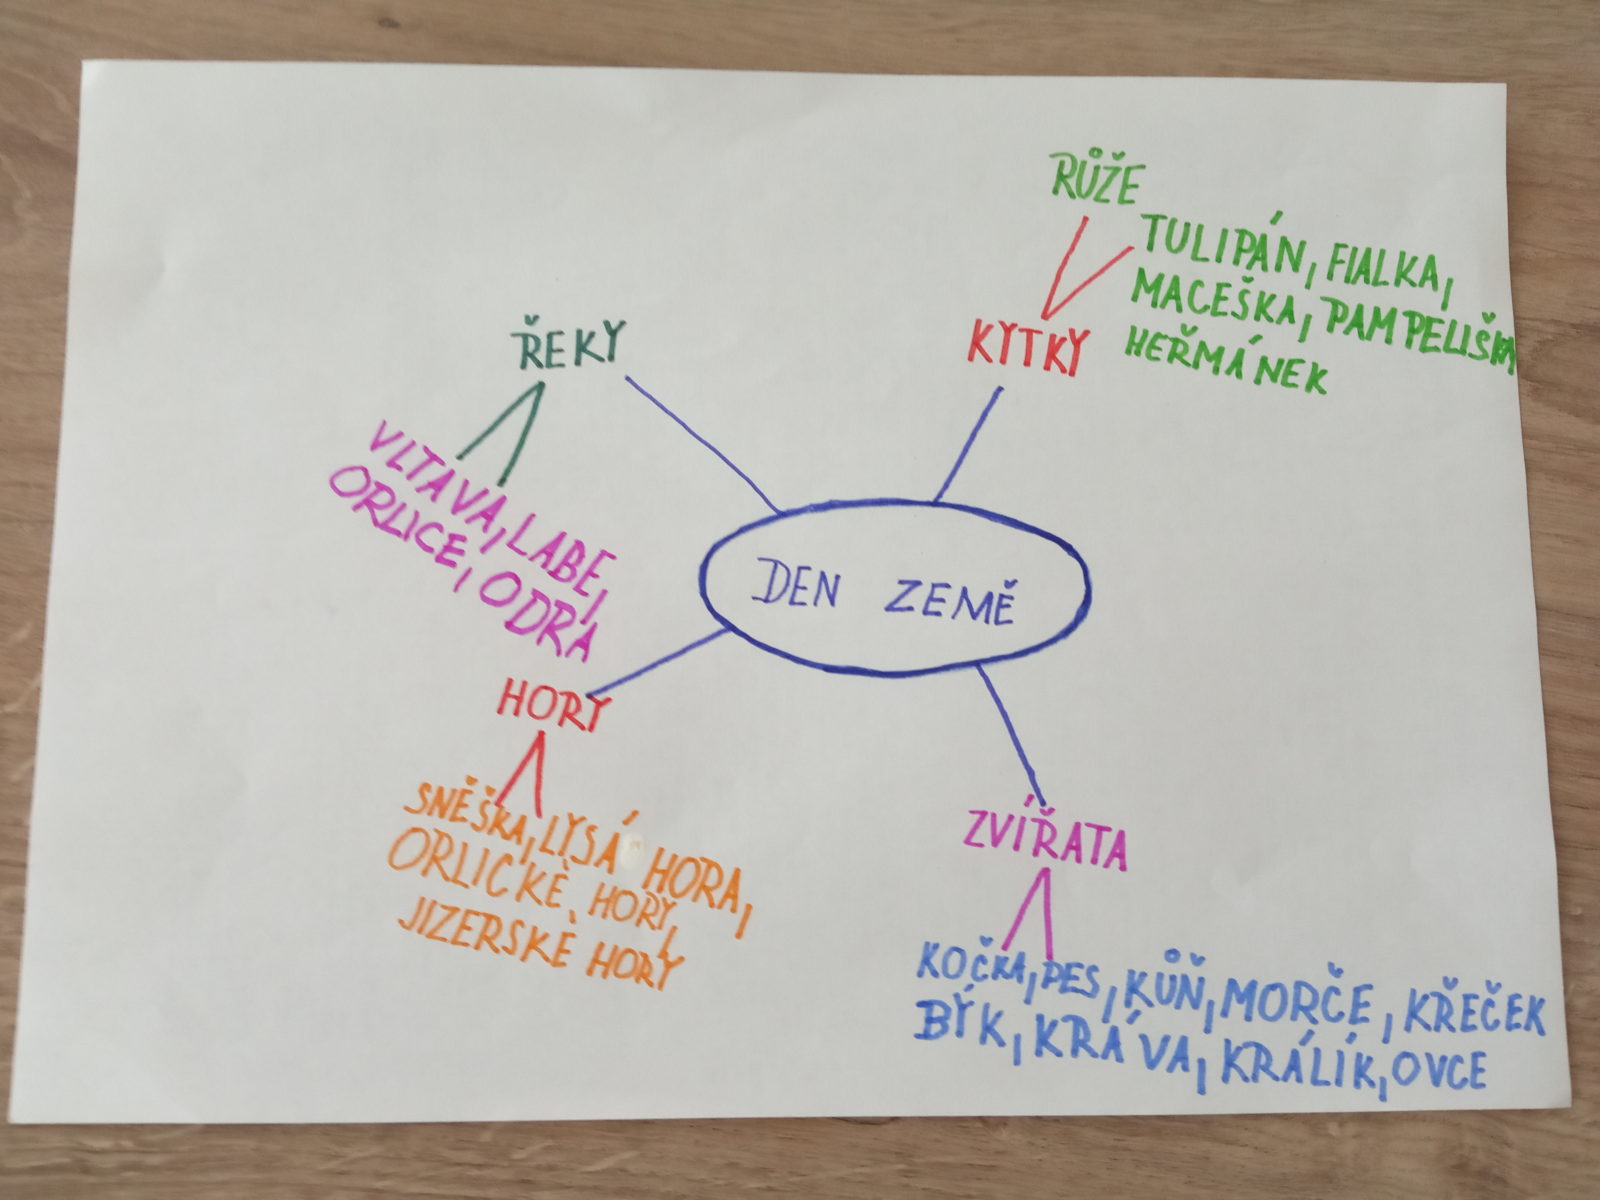 DEN ZEMĚ
ŘEKY
VLTAVA, LABE,
ORLICE, ODRA
KYTKY
RŮŽE
TULIPÁN, FIALKA,
MACEŠKA, PAMPELIŠKA
HEŘMÁNEK
HORY
SNĚŠKA, LYSÁ HORA,
ORLICKÉ HORY,
JIZERSKÉ HORY
ZVÍŘATA
KOČKA, PES, KŮŇ, MORČE, KŘEČEK
BÝK, KRÁVA, KRÁLÍK, OVCE